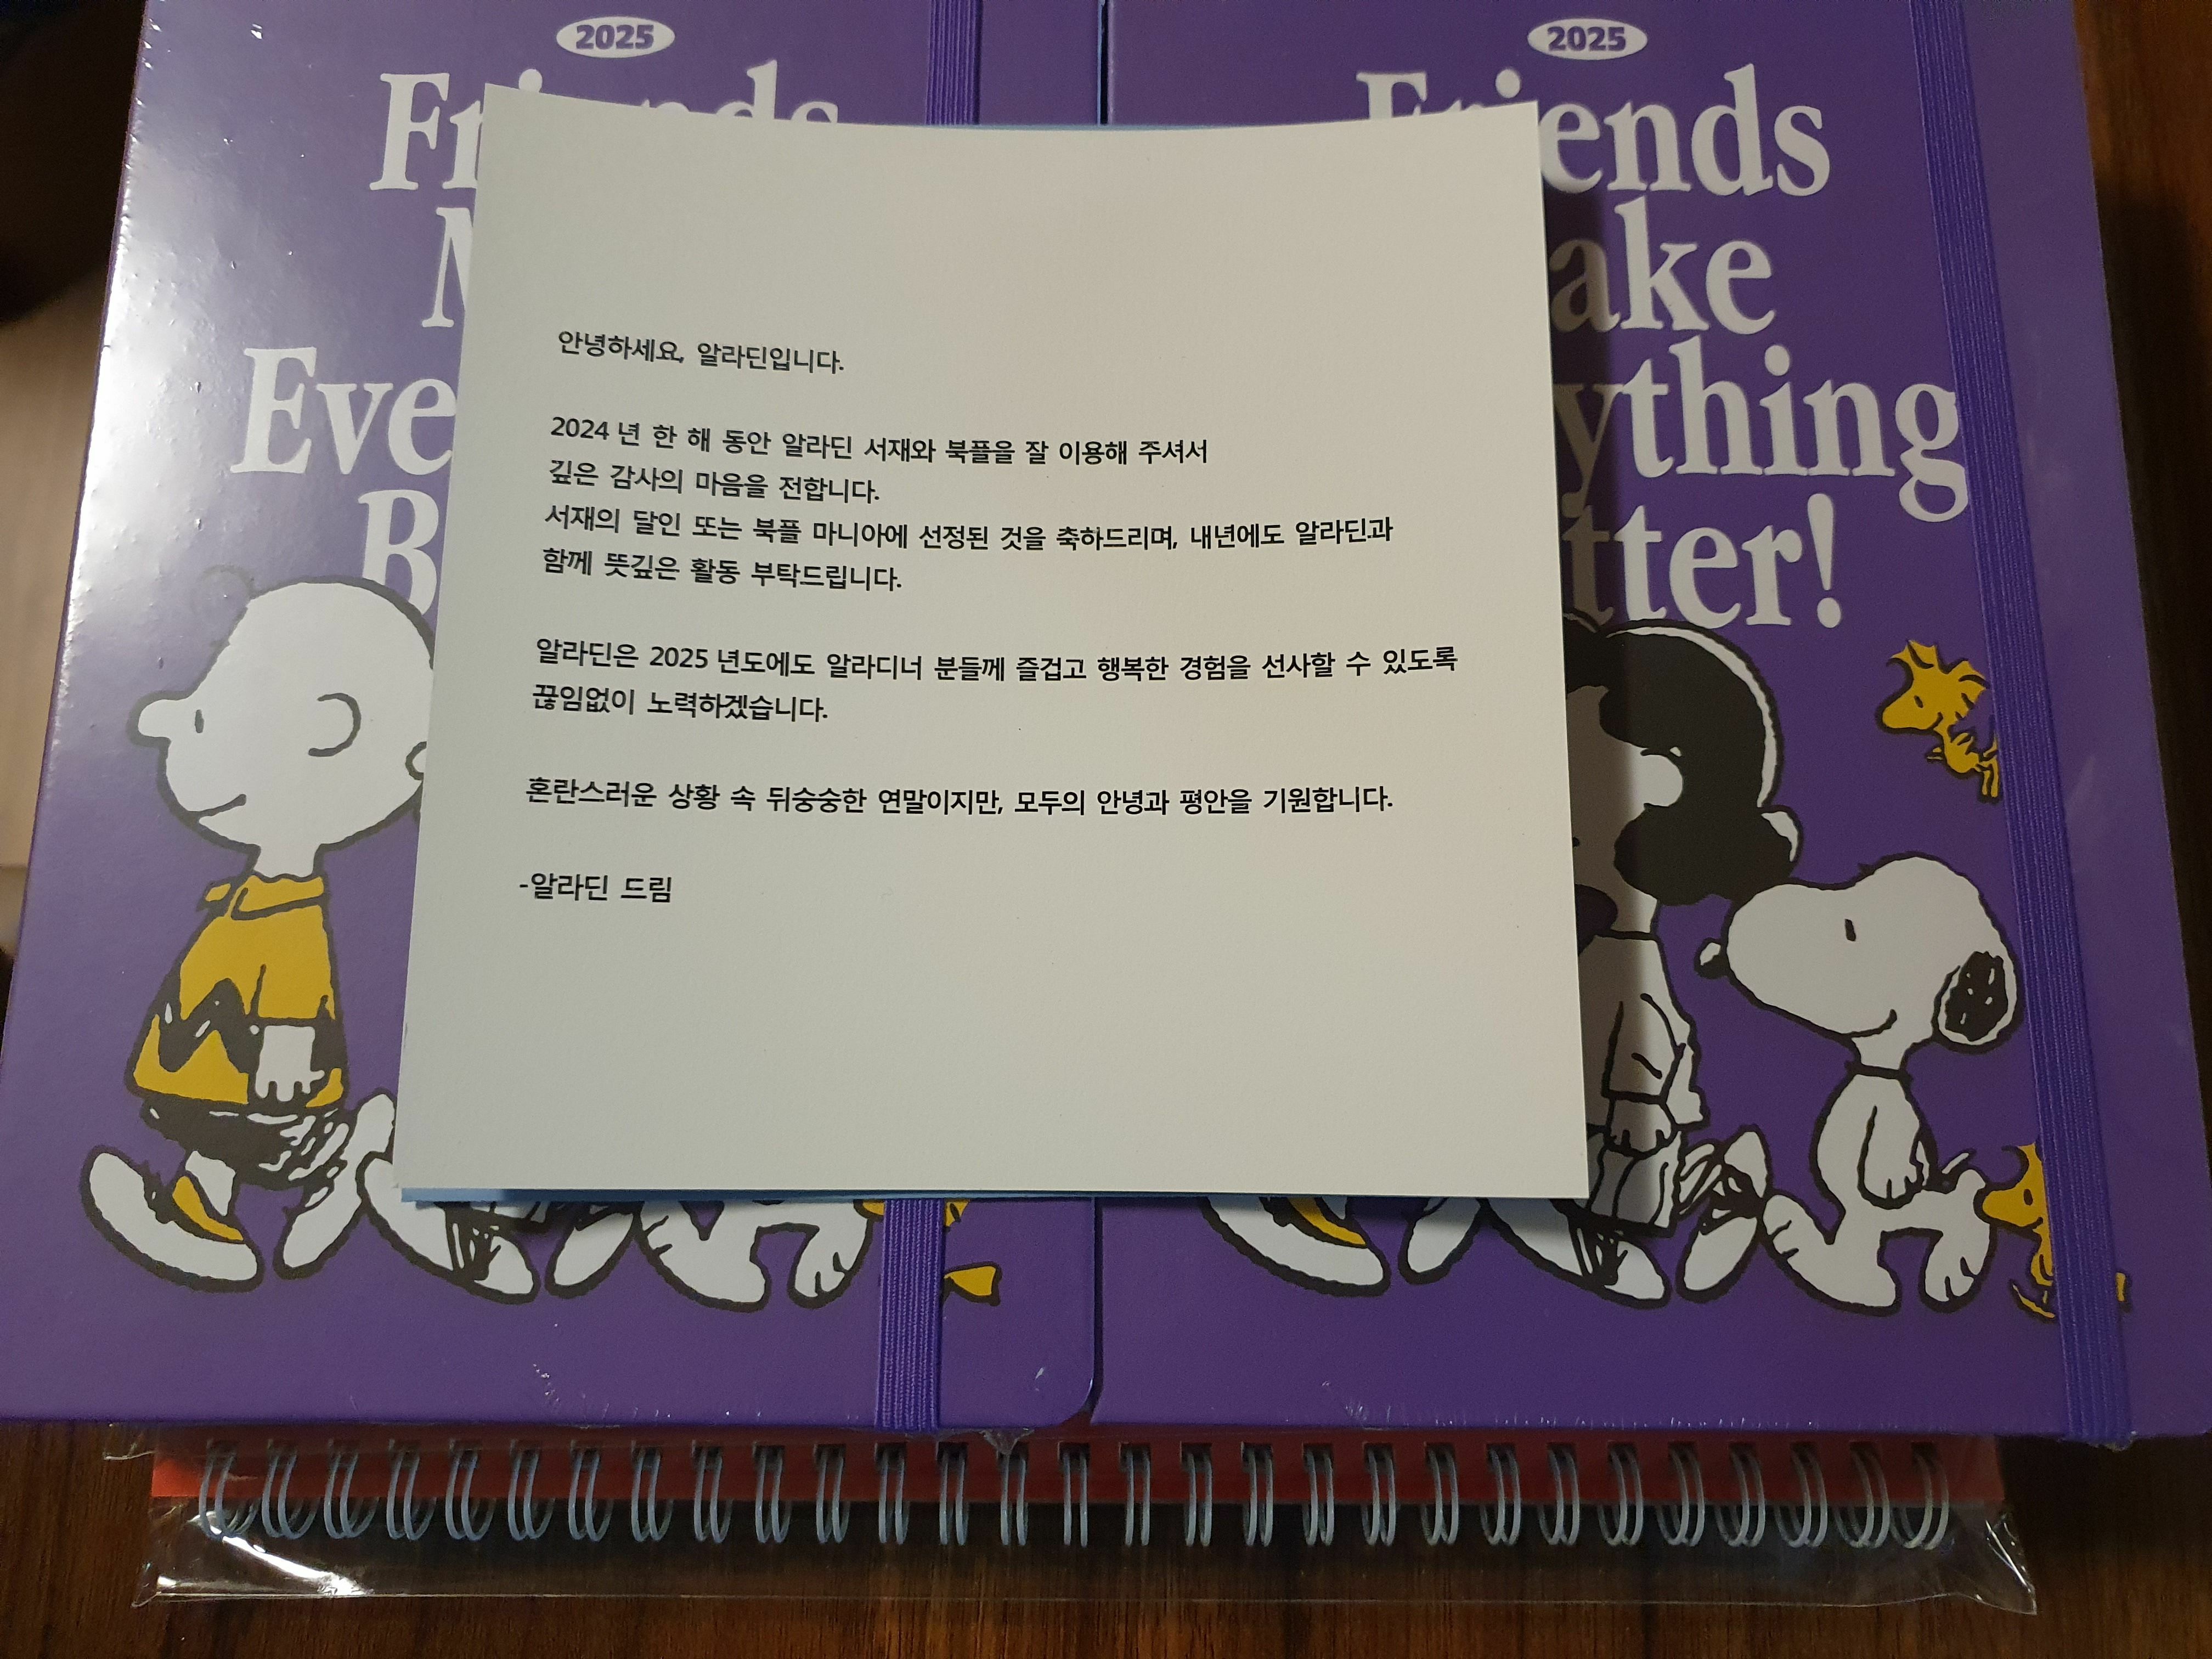 2025
Friends
Eve
B
2025
Friends
ake
ything
tter!
안녕하세요, 알라딘입니다.
2024년 한 해 동안 알라딘 서재와 북플을 잘 이용해 주셔서
깊은 감사의 마음을 전합니다.
서재의 달인 또는 북플 마니아에 선정된 것을 축하드리며, 내년에도 알라딘과
함께 뜻깊은 활동 부탁드립니다.
알라딘은 2025년도에도 알라디너 분들께 즐겁고 행복한 경험을 선사할 수 있도록
끊임없이 노력하겠습니다.
혼란스러운 상황 속 뒤숭숭한 연말이지만, 모두의 안녕과 평안을 기원합니다.
-알라딘 드림